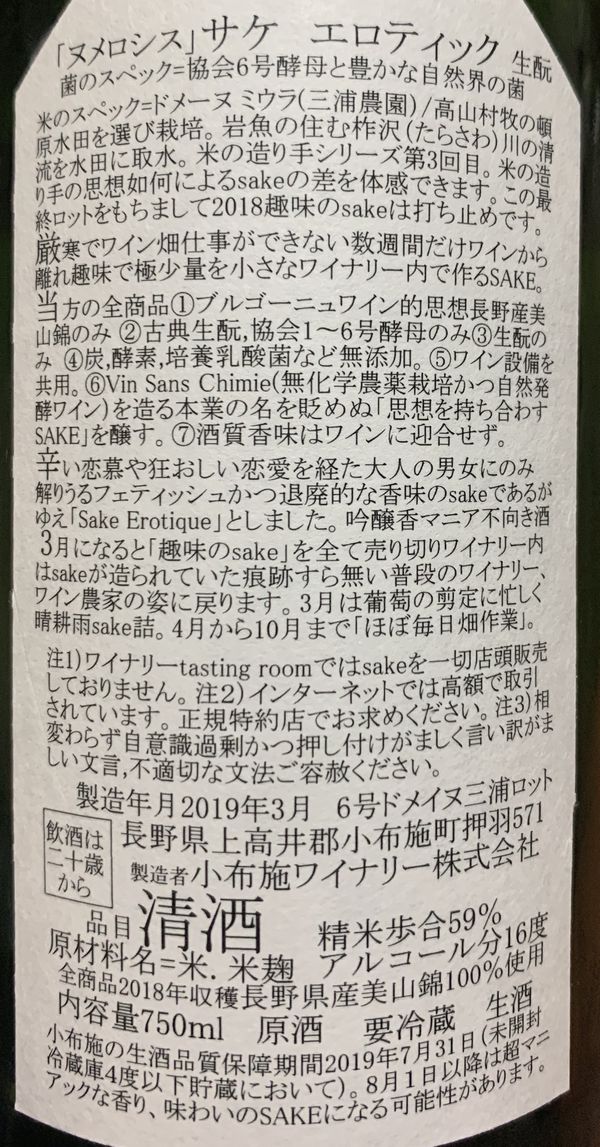 「ヌメロシス」サケ エロティック 生酛
菌のスペック=協会6号酵母と豊かな自然界の菌
米のスペック=ドメーヌ ミウラ(三浦農園)/高山村牧の頓
原水田を選び栽培。岩魚の住む柞沢(たらさわ)川の清
流を水田に取水。米の造り手シリーズ第3回目。米の造
り手の思想如何によるsakeの差を体感できます。この最
終ロットをもちまして2018趣味のsakeは打ち止めです。
厳寒でワイン畑仕事ができない数週間だけワインから
離れ趣味で極少量を小さなワイナリー内で作るSAKE。
当方の全商品①ブルゴーニュワイン的思想長野産美
山錦のみ ②古典生酛,協会1〜6号酵母のみ③生酛の
み ④炭,酵素,培養乳酸菌など無添加。⑤ワイン設備を
共用。⑥Vin Sans Chimie(無化学農薬栽培かつ自然発
酵ワイン)を造る本業の名を貶めぬ「思想を持ち合わす
SAKE」を醸す。⑦酒質香味はワインに迎合せず。
辛い恋慕や狂おしい恋愛を経た大人の男女にのみ
解りうるフェティッシュかつ退廃的な香味のsakeであるが
ゆえ「Sake Erotique」としました。吟醸香マニア不向き酒
3月になると「趣味のsake」を全て売り切りワイナリー内
はsakeが造られていた痕跡すら無い普段のワイナリー、
ワイン農家の姿に戻ります。3月は葡萄の剪定に忙しく
晴耕雨sake詰。4月から10月まで「ほぼ毎日畑作業」。
注1)ワイナリーtasting roomではsakeを一切店頭販売
しておりません。注2)インターネットでは高額で取引
されています。正規特約店でお求めください。注3)相
変わらず自意識過剰かつ押し付けがましく言い訳がま
しい文言,不適切な文法ご容赦ください。
製造年月2019年3月 6号ドメイヌ三浦ロット
飲酒は
二十歳
から
長野県上高井郡小布施町押羽571
製造者小布施ワイナリー株式会社
品目 清酒 精米歩合59%
原材料名=米.米麹 アルコール分16度
全商品2018年収穫長野県産美山錦100%使用
内容量750ml 原酒 要冷蔵 生酒
小布施の生酒品質保障期間2019年7月31日(未開封
冷蔵庫4度以下貯蔵において)。8月1日以降は超マニ
アックな香り、味わいのSAKEになる可能性があります。